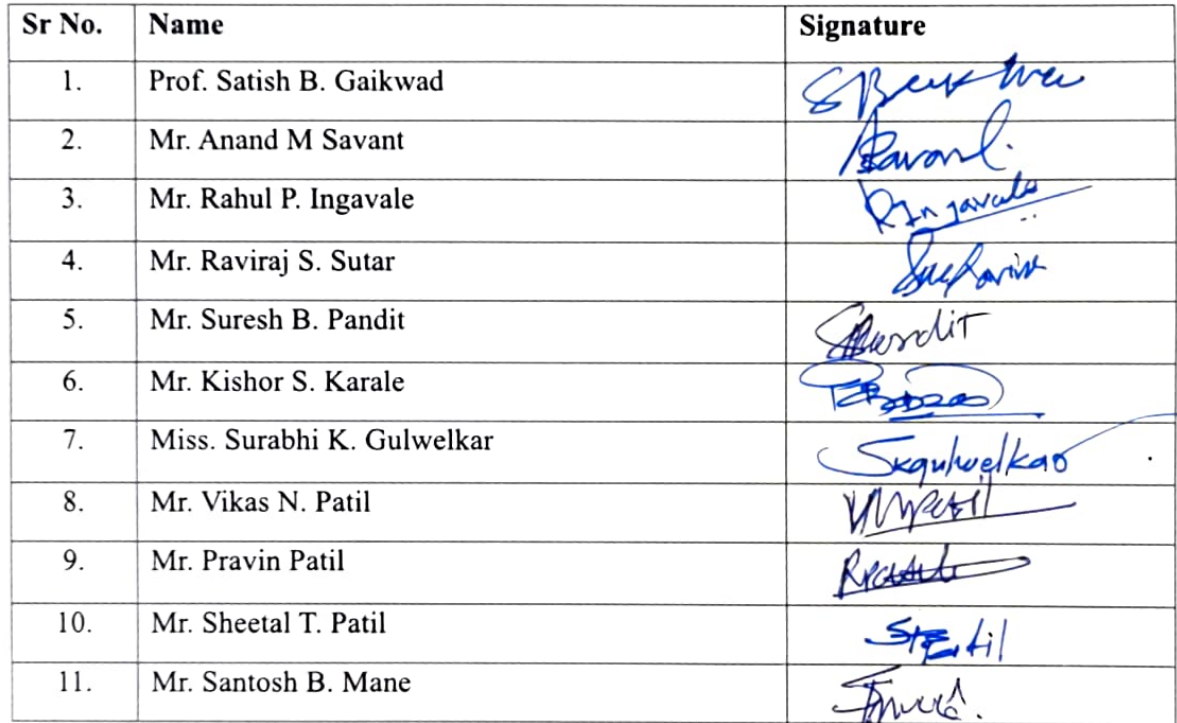 Sr No. Name Signature
1. Prof. Satish B. Gaikwad
2. Mr. Anand M Savant
3. Mr. Rahul P. Ingavale RIngavale
4. Mr. Raviraj S. Sutar
5. Mr. Suresh B. Pandit
6. Mr. Kishor S. Karale
7. Miss. Surabhi K. Gulwelkar Skgulwelkar
8. Mr. Vikas N. Patil VNPatil
9. Mr. Pravin Patil
10. Mr. Sheetal T. Patil STPatil
11. Mr. Santosh B. Mane